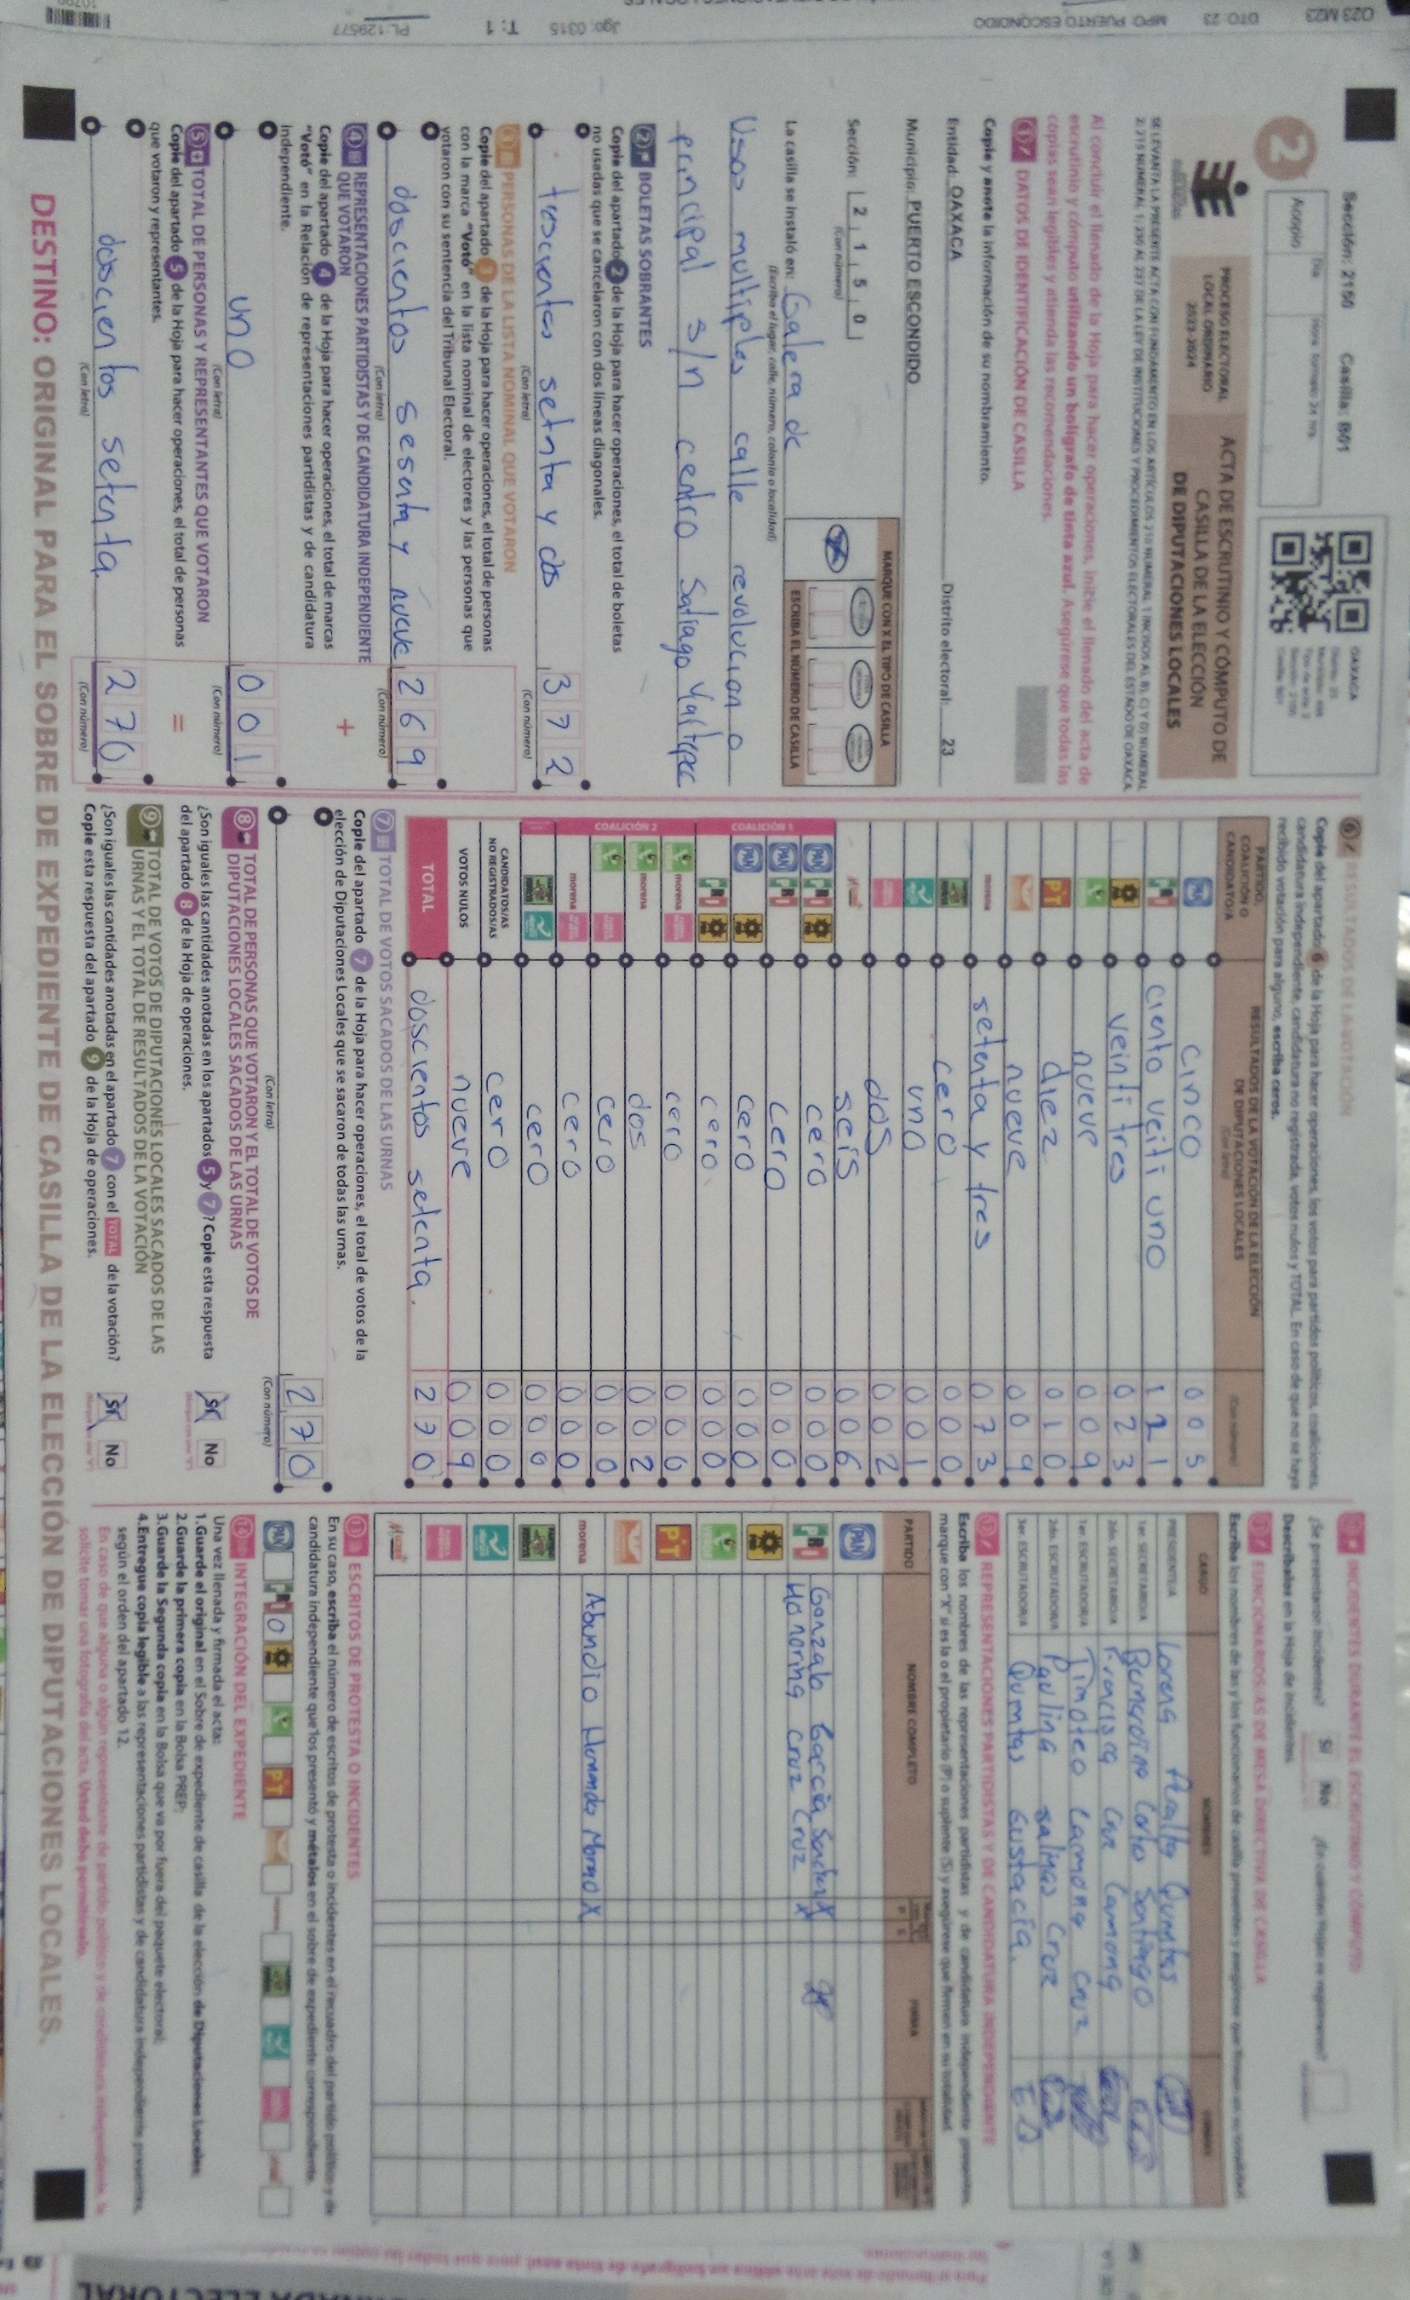 Sección: 2150 Casilla: B01
2
Acopio
Día
Hora formato 24 hrs.
OAXACA
PROCESO ELECTORAL
LOCAL ORDINARIO
2023-2024
ACTA DE ESCRUTINIO Y CÓMPUTO DE
CASILLA DE LA ELECCIÓN
DE DIPUTACIONES LOCALES
Al concluir el llenado de la Hoja para hacer operaciones, inicie el llenado del acta de
escrutinio y cómputo utilizando un bolígrafo de tinta azul. Asegúrese que todas las
copias sean legibles y atienda las recomendaciones.
1 DATOS DE IDENTIFICACIÓN DE CASILLA
Copie y anote la información de su nombramiento.
Entidad: OAXACA Distrito electoral: 23
Municipio: PUERTO ESCONDIDO
Sección: 2 1 5 0
(Con número)
MARQUE CON X EL TIPO DE CASILLA
ESCRIBA EL NÚMERO DE CASILLA
La casilla se instaló en: Galera de
(Escriba el lugar, calle, número, colonia o localidad)
Usos multiples calle revolucion o
principal s/n centro
2 BOLETAS SOBRANTES
Copie del apartado 2 de la Hoja para hacer operaciones, el total de boletas
no usadas que se cancelaron con dos líneas diagonales.
setnta y dos 3 7 2
(Con letra) (Con número)
3 PERSONAS DE LA LISTA NOMINAL QUE VOTARON
Copie del apartado 3 de la Hoja para hacer operaciones, el total de personas
con la marca "Votó" en la lista nominal de electores y las personas que
votaron con su sentencia del Tribunal Electoral.
doscientos sesenta y nueve 2 6 9
(Con letra) (Con número)
4 REPRESENTACIONES PARTIDISTAS Y DE CANDIDATURA INDEPENDIENTE
QUE VOTARON
+
Copie del apartado 4 de la Hoja para hacer operaciones, el total de marcas
"Votó" en la Relación de representaciones partidistas y de candidatura
independiente.
uno 0 0 1
(Con letra) (Con número)
5 TOTAL DE PERSONAS Y REPRESENTANTES QUE VOTARON
=
Copie del apartado 5 de la Hoja para hacer operaciones, el total de personas
que votaron y representantes.
doscientos setenta 2 7 0
(Con letra) (Con número)
6 RESULTADOS DE LA VOTACIÓN
Copie del apartado 6 de la Hoja para hacer operaciones, los votos para partidos políticos, coaliciones,
candidatura independiente, candidatura no registrada, votos nulos y TOTAL. En caso de que no se haya
recibido votación para alguno, escriba ceros.
PARTIDO,
COALICIÓN O
CANDIDATO/A
RESULTADOS DE LA VOTACIÓN DE LA ELECCIÓN
DE DIPUTACIONES LOCALES
(Con letra)
(Con número)
PAN cinco 0 0 5
PRI ciento veiti uno 1 2 1
veinti tres 0 2 3
nueve 0 0 9
PT diez 0 1 0
nueve 0 0 9
morena setenta y tres 0 7 3
cero 0 0 0
uno 0 0 1
dos 0 0 2
seis 0 0 6
COALICIÓN 1
PAN PRI cero 0 0 0
PAN PRI cero 0 0 0
PAN cero 0 0 0
PRI cero 0 0 0
COALICIÓN 2
morena cero 0 0 0
morena dos 0 0 2
cero 0 0 0
morena cero 0 0 0
cero 0 0 0
CANDIDATOS/AS
NO REGISTRADOS/AS cero 0 0 0
VOTOS NULOS nueve 0 0 9
TOTAL doscientos setenta. 2 7 0
7 TOTAL DE VOTOS SACADOS DE LAS URNAS
Copie del apartado 7 de la Hoja para hacer operaciones, el total de votos de la
elección de Diputaciones Locales que se sacaron de todas las urnas.
2 7 0
(Con letra) (Con número)
8 TOTAL DE PERSONAS QUE VOTARON Y EL TOTAL DE VOTOS DE
DIPUTACIONES LOCALES SACADOS DE LAS URNAS
¿Son iguales las cantidades anotadas en los apartados 5 y 7? Copie esta respuesta
del apartado 8 de la Hoja de operaciones.
Sí No
9 TOTAL DE VOTOS DE DIPUTACIONES LOCALES SACADOS DE LAS
URNAS Y EL TOTAL DE RESULTADOS DE LA VOTACIÓN
¿Son iguales las cantidades anotadas en el apartado 7 con el TOTAL de la votación?
Copie esta respuesta del apartado 9 de la Hoja de operaciones.
Sí No
INCIDENTES DURANTE EL ESCRUTINIO Y CÓMPUTO
¿Se presentaron incidentes? Sí No
Descríbalos en la Hoja de incidentes.
FUNCIONARIOS/AS DE MESA DIRECTIVA DE CASILLA
CARGO NOMBRES
PRESIDENTE/A Lorena
1er. SECRETARIO/A
2do. SECRETARIO/A
1er. ESCRUTADOR/A Timoteo Carmona Cruz
2do. ESCRUTADOR/A Paulina salinas Cruz
3er. ESCRUTADOR/A
REPRESENTACIONES PARTIDISTAS Y DE CANDIDATURA INDEPENDIENTE
Escriba los nombres de las representaciones partidistas y de candidatura independiente presentes,
marque con "X" si es la o el propietario (P) o suplente (S) y asegúrese que firmen en su totalidad.
PARTIDO NOMBRE COMPLETO FIRMA
PAN
PRI Gonzalo García
Honorina Cruz Cruz X
PT
morena
ESCRITOS DE PROTESTA O INCIDENTES
En su caso, escriba el número de escritos de protesta o incidentes en el recuadro del partido político y de
candidatura independiente que los presentó y métalos en el sobre de expediente correspondiente.
PAN PRI 0 PT
14 INTEGRACIÓN DEL EXPEDIENTE
Una vez llenada y firmada el acta:
1.Guarde el original en el Sobre de expediente de casilla de la elección de Diputaciones Locales.
2.Guarde la primera copia en la Bolsa PREP.
3.Guarde la Segunda copia en la Bolsa que va por fuera del paquete electoral.
4.Entregue copia legible a las representaciones partidistas y de candidatura independiente presentes,
según el orden del apartado 12.
DESTINO: ORIGINAL PARA EL SOBRE DE EXPEDIENTE DE CASILLA DE LA ELECCIÓN DE DIPUTACIONES LOCALES.
O23 M23 DTO: 23 MPO: PUERTO ESCONDIDO Jgo: 0315 T: 1 PL: 129577